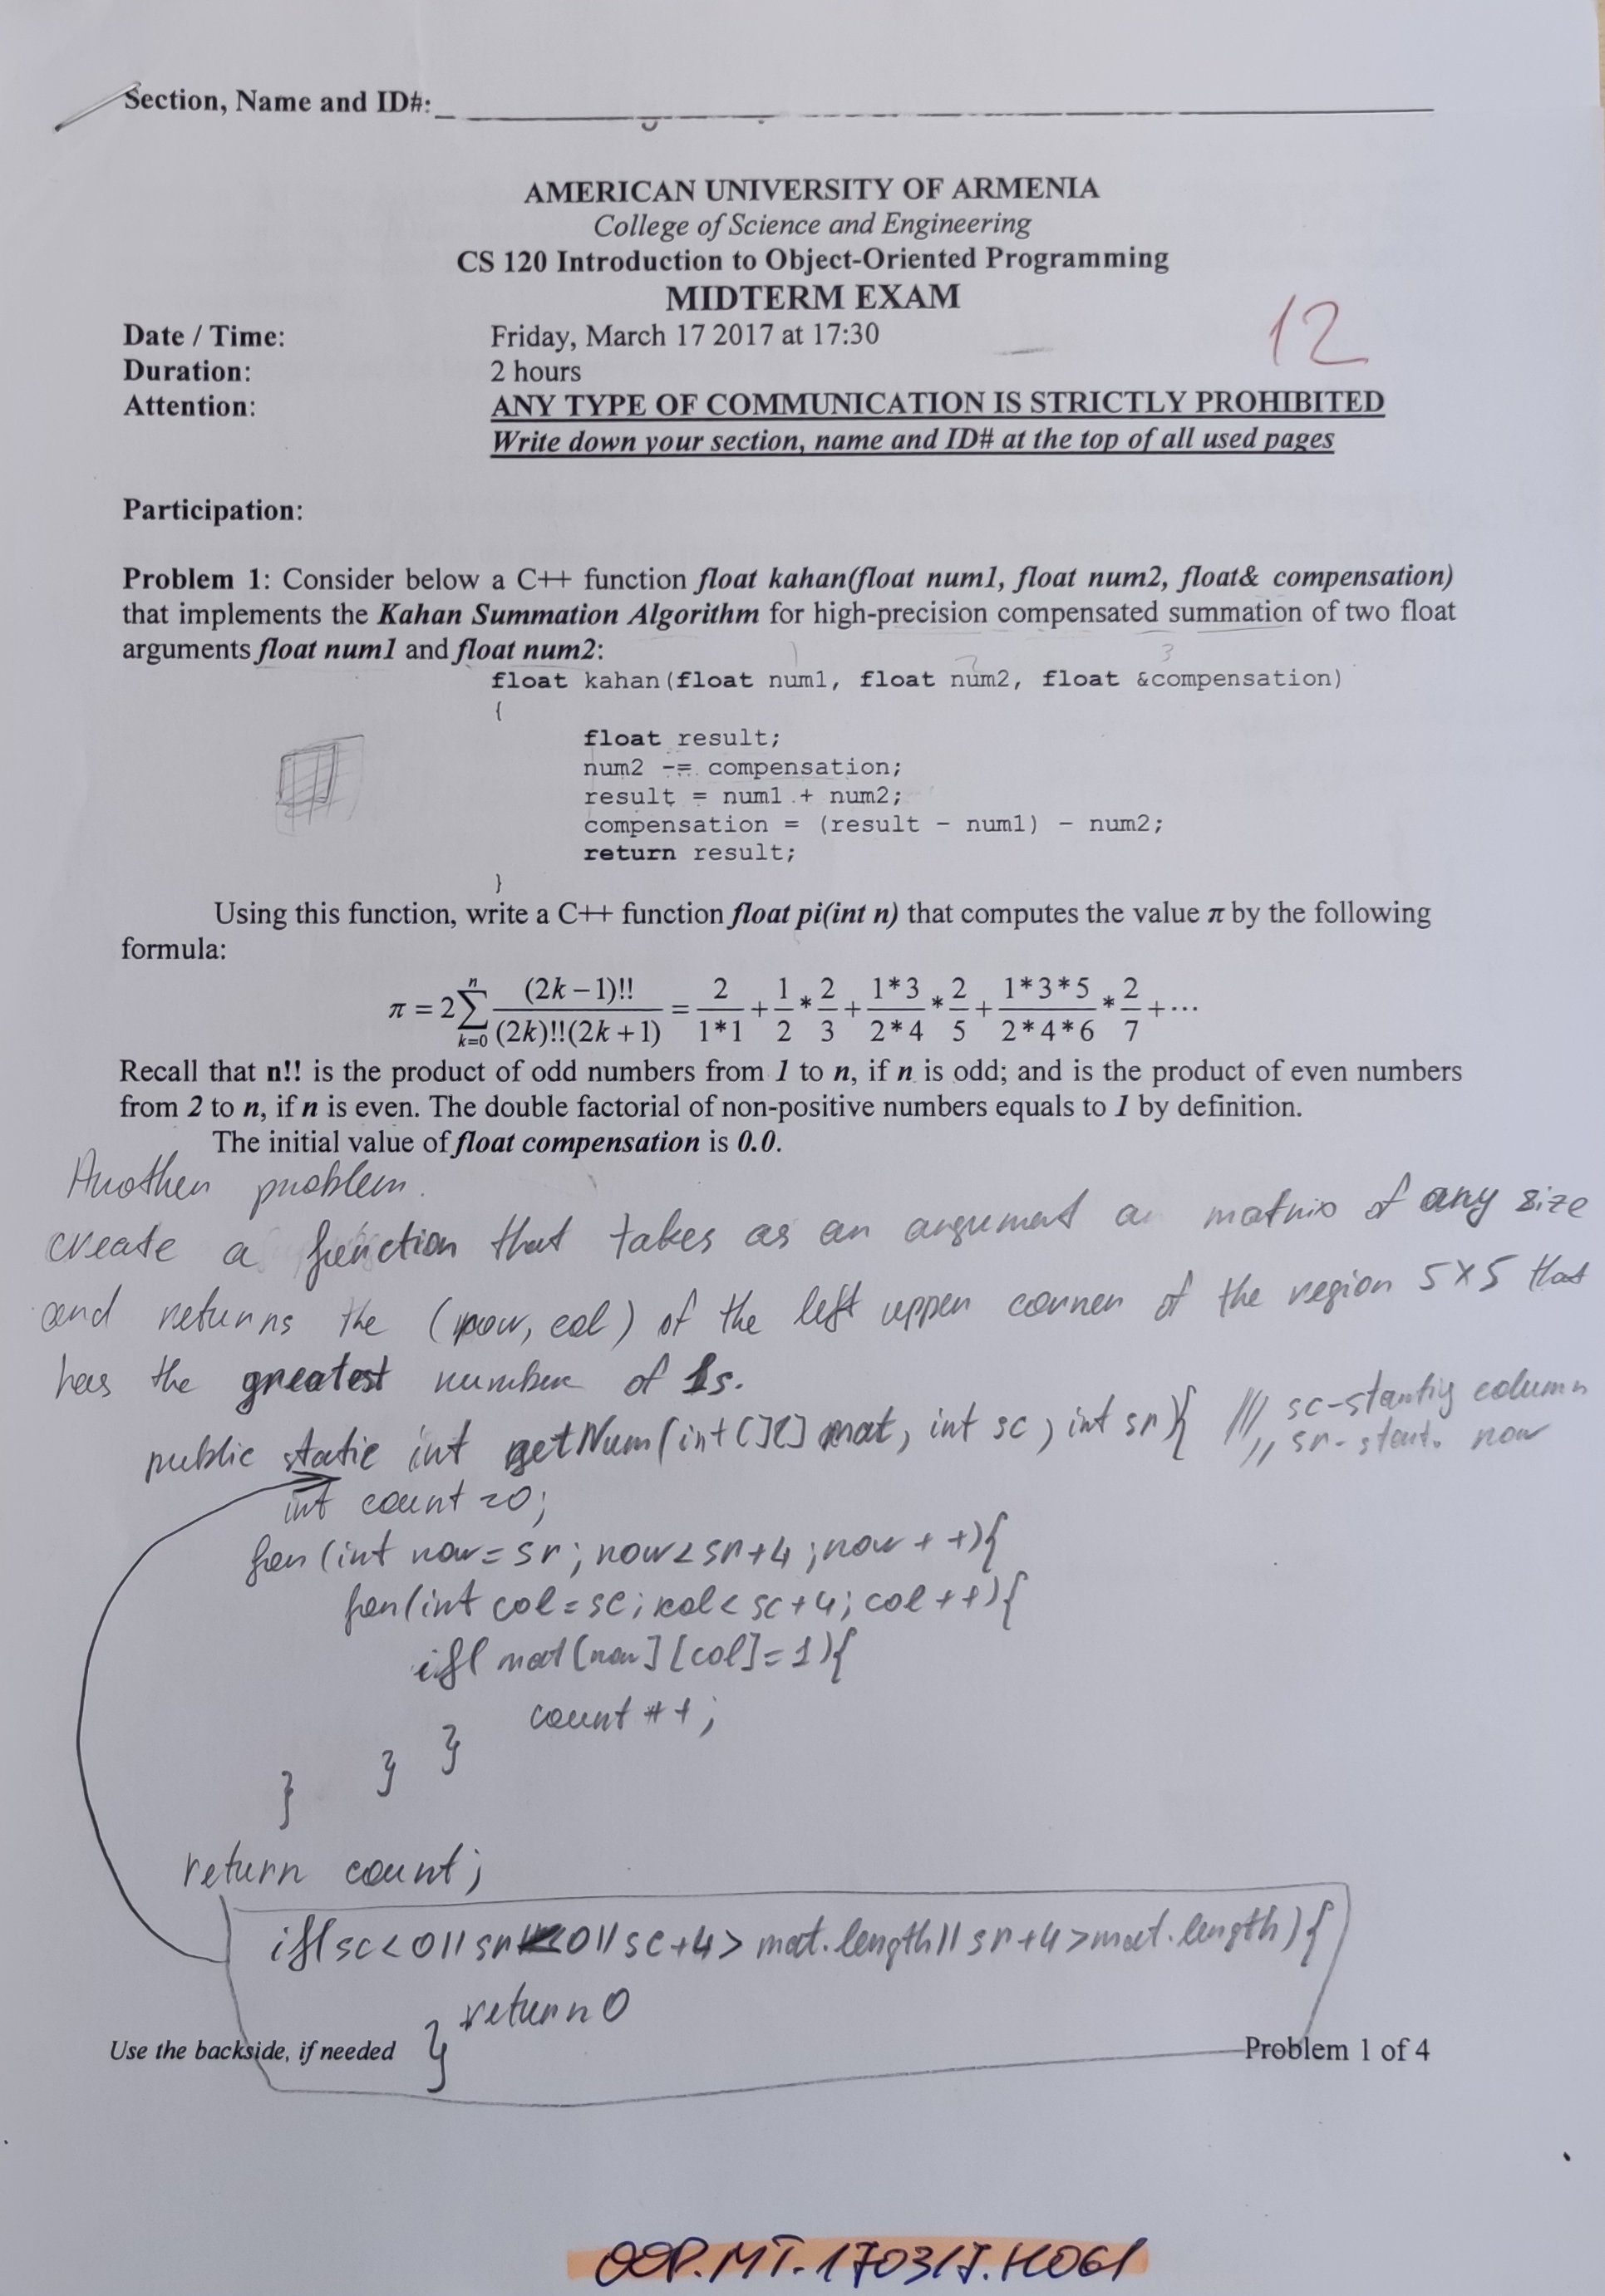 Section, Name and ID#:
AMERICAN UNIVERSITY OF ARMENIA
College of Science and Engineering
CS 120 Introduction to Object-Oriented Programming
MIDTERM EXAM
12
Date / Time: Friday, March 17 2017 at 17:30
Duration: 2 hours
Attention: ANY TYPE OF COMMUNICATION IS STRICTLY PROHIBITED
Write down your section, name and ID# at the top of all used pages
Participation:
Problem 1: Consider below a C++ function float kahan(float num1, float num2, float& compensation)
that implements the Kahan Summation Algorithm for high-precision compensated summation of two float
arguments float num1 and float num2:
1 2 3
float kahan(float num1, float num2, float &compensation)
{
float result;
num2 -= compensation;
result = num1 + num2;
compensation = (result - num1) - num2;
return result;
}
Using this function, write a C++ function float pi(int n) that computes the value π by the following
formula:
π = 2∑_{k=0}^{n} (2k−1)!! / ((2k)!!(2k+1)) = 2/(1*1) + 1/2 * 2/3 + (1*3)/(2*4) * 2/5 + (1*3*5)/(2*4*6) * 2/7 + ⋯
Recall that n!! is the product of odd numbers from 1 to n, if n is odd; and is the product of even numbers
from 2 to n, if n is even. The double factorial of non-positive numbers equals to 1 by definition.
The initial value of float compensation is 0.0.
Another problem.
create a function that takes as an argument a matrix of any size
and returns the (row, col) of the left upper corner of the region 5x5 that
has the greatest number of 1s.
public static int getNum(int[][] mat, int sc, int sr){ /// sc-startig column
// sr-start. row
int count =0;
for (int row = sr; row < sr+4; row ++){
for(int col = sc; col < sc+4; col++){
if( mat[row][col]=1){
count ++;
}
}
}
return count;
if(sc<0||sr<0||sc+4>mat.length||sr+4>mat.length){
return 0
}
Use the backside, if needed Problem 1 of 4
OOP.MT.170317.H061